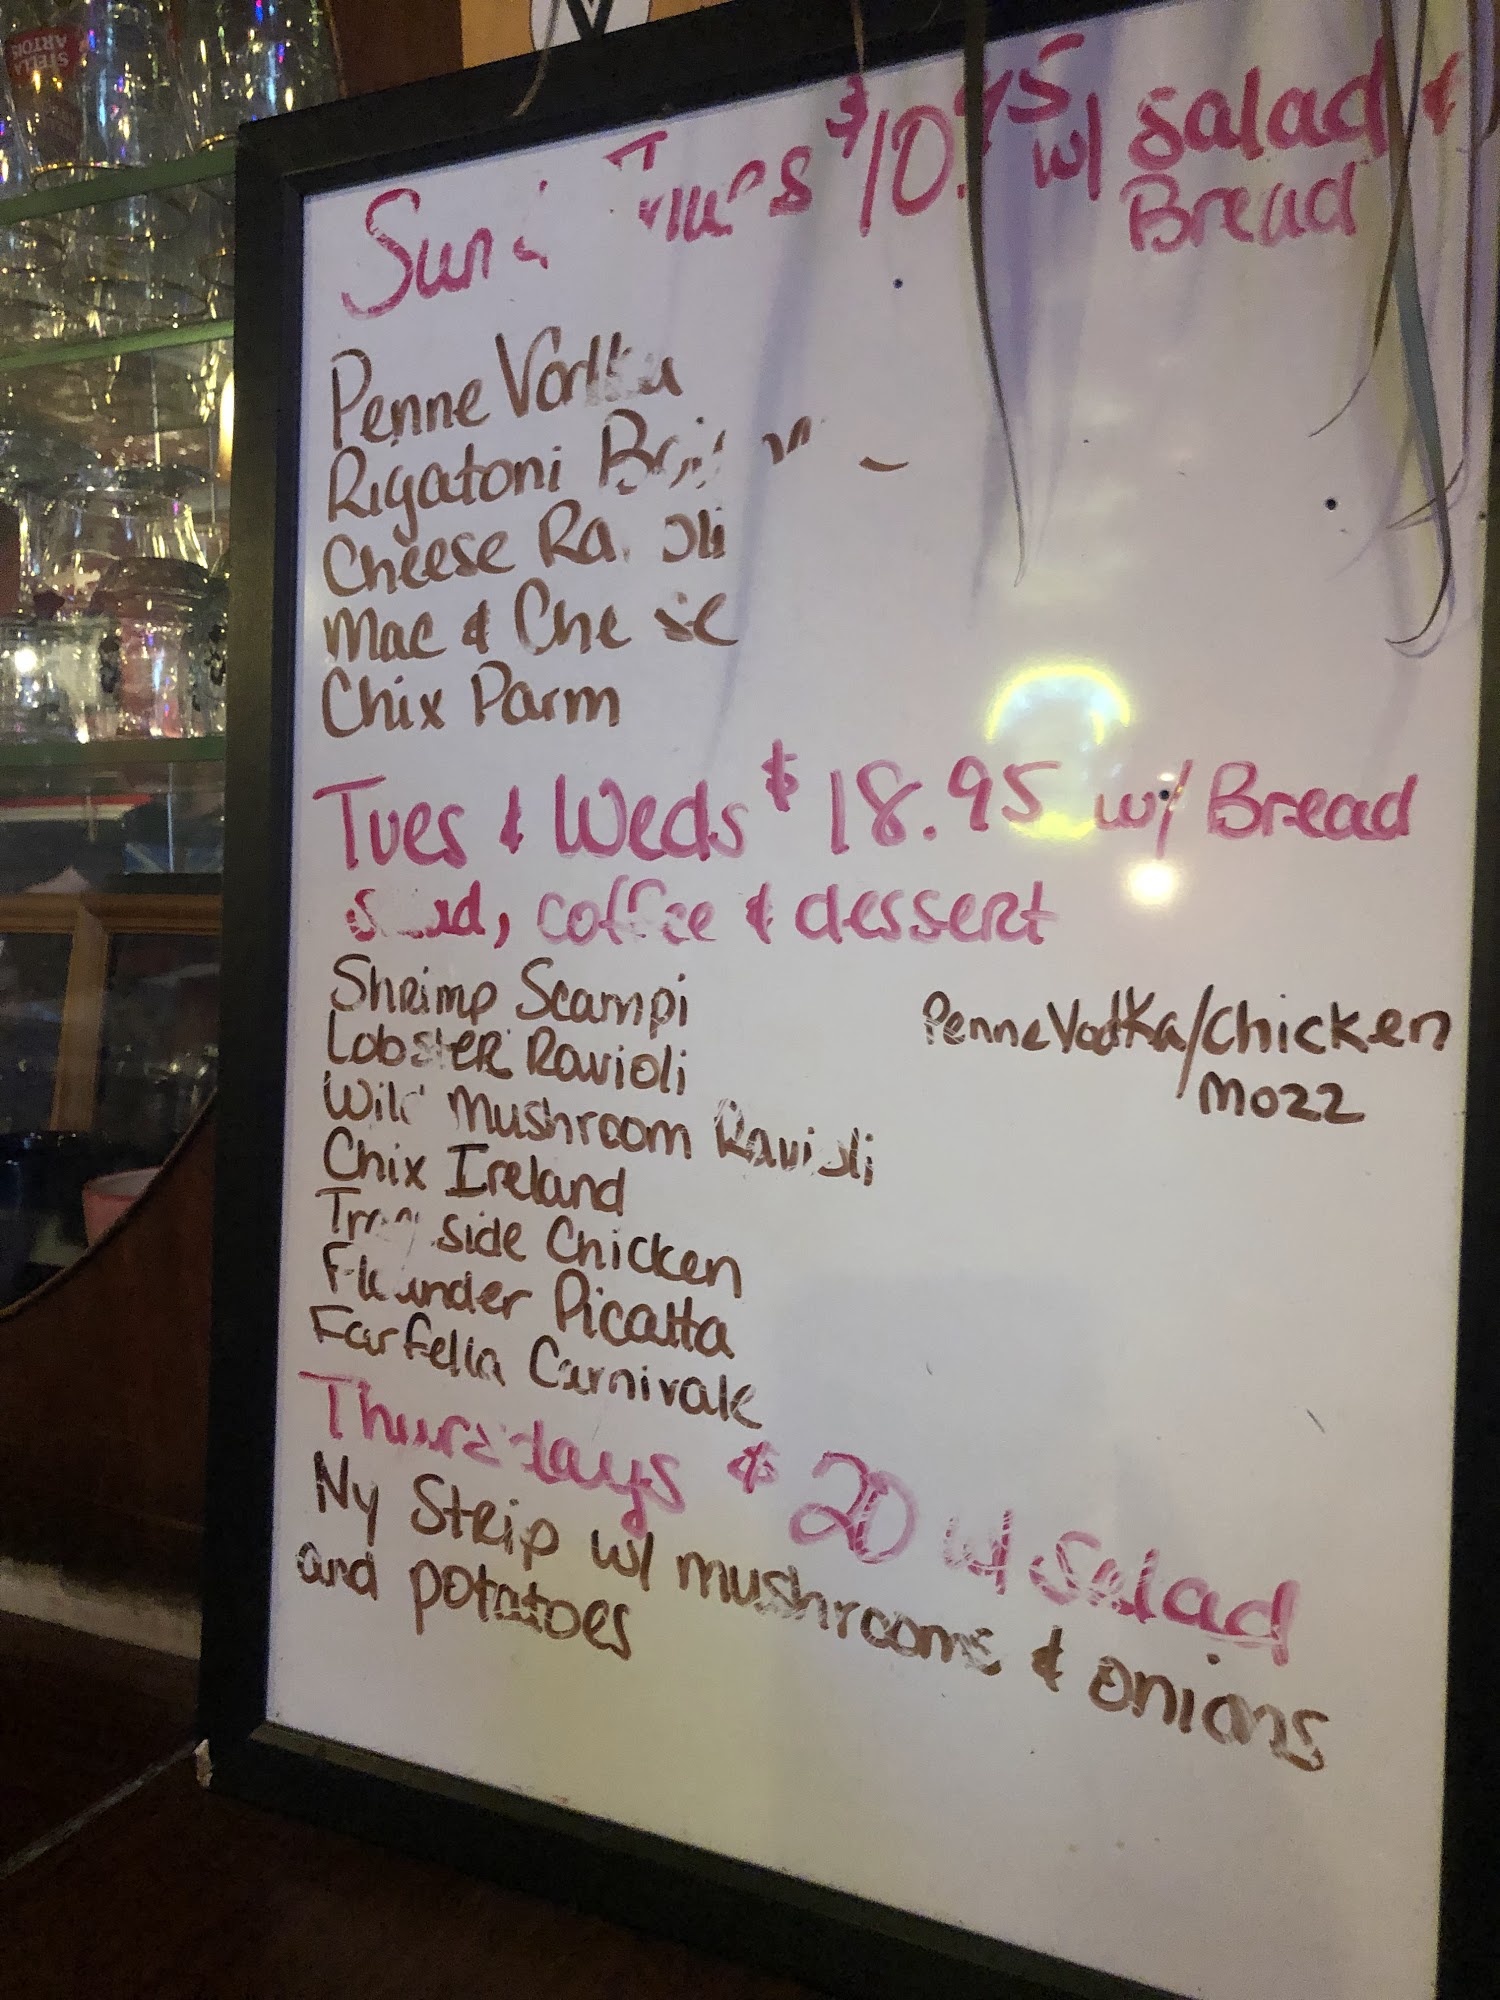 STELLA
ARTOIS
Sun & Tues $10.95 w/ salad &
Bread
Penne Vodka
Rigatoni
Cheese Ravioli
Mac & Cheese
Chix Parm
Tues & Weds $18.95 w/ Bread
salad, coffee & dessert
Shrimp Scampi
Lobster Ravioli
Wild Mushroom Ravioli
Chix Ireland
side Chicken
Flounder Picatta
Farfella Carnivale
Penne Vodka/Chicken
Mozz
Thursdays $20 w/ Salad
Ny Strip w/ mushrooms & onions
and potatoes